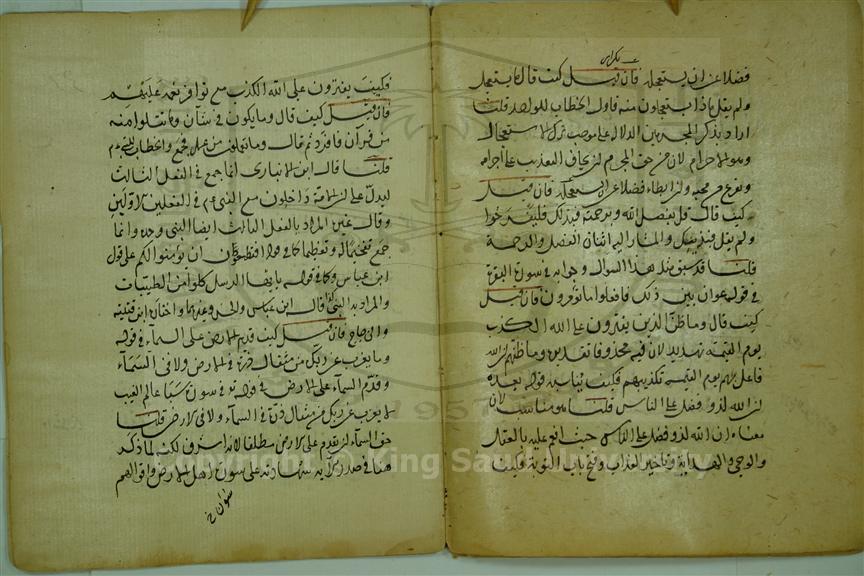 فضلا عن ان يستعجله فان قيل كيف قال ماذا يستعجل
ولم يقل ماذا يستعجلون منه واول الخطاب للواحد قلنا
اراد بذكر المجرمين الدلالة على موجب ترك الاستعجال
وهو الاجرام لان من حق المجرم ان يخاف التعذيب على اجرامه
ويفزع من مجيئه وان ابطاء فضلا عن ان يستعجله فان قيل
كيف قال قل بفضل الله وبرحمته فبذلك فليفرحوا
ولم يقل فبذينك والمشار اليه اثنان الفضل والرحمة
قلنا قد سبق مثل هذا السؤال وجوابه في سورة البقرة
في قوله عوان بين ذلك فافعلوا ما تؤمرون فان قيل
كيف قال وما ظن الذين يفترون على الله الكذب
يوم القيمة تهديد لان فيه محذوفا تقديره وما ظنهم ان الله
فاعل بهم يوم القيمة بكذبهم فكيف يناسبه قوله بعده
ان الله لذو فضل على الناس قلنا هو مناسب لان
معناه ان الله لذو فضل على الناس حيث انعم عليه بالعقل
والوحي والهداية وتاخير العذاب وفتح باب التوبة فكيف
فكيف يفترون على الله الكذب مع توافر نعمه عليهم
فان قيل كيف قال وما يكون في شان وما تتلوا منه
من قرآن فافرد ثم قال وما تعملون من عمل جمع والخطاب للنبي م
قلنا قال ابن الانباري انما جمع في الفعل الثالث
ليدل على ان الامة داخلون مع النبي م في الفعلين الاولين
وقال غيره المراد بالفعل الثالث ايضا النبي وحده وانما
جمع تفخيما له وتعظيما كما في قوله افتطمعون ان يؤمنوا لكم على قول
ابن عباس وكما في قوله يا ايها الرسل كلوا من الطيبات
والمراد به النبي كذا قال ابن عباس والحسن وغيرهما واختاره ابن قتيبة
والزجاج فان قيل كيف قدم الارض على السمآء في قوله
وما يعزب عن ربك من مثقال ذرة في الارض ولا في السماء
وقدم السمآء على الارض في قوله في سورة سبا عالم الغيب
لا يعزب عنه مثقال ذرة في السمآء ولا في الارض قلنا
حق السماء ان تقدم على الارض مطلقا لانها اشرف لكنه لما ذكر
هنا في صدر الاية شهادته على شؤن اهل الارض واقوالهم